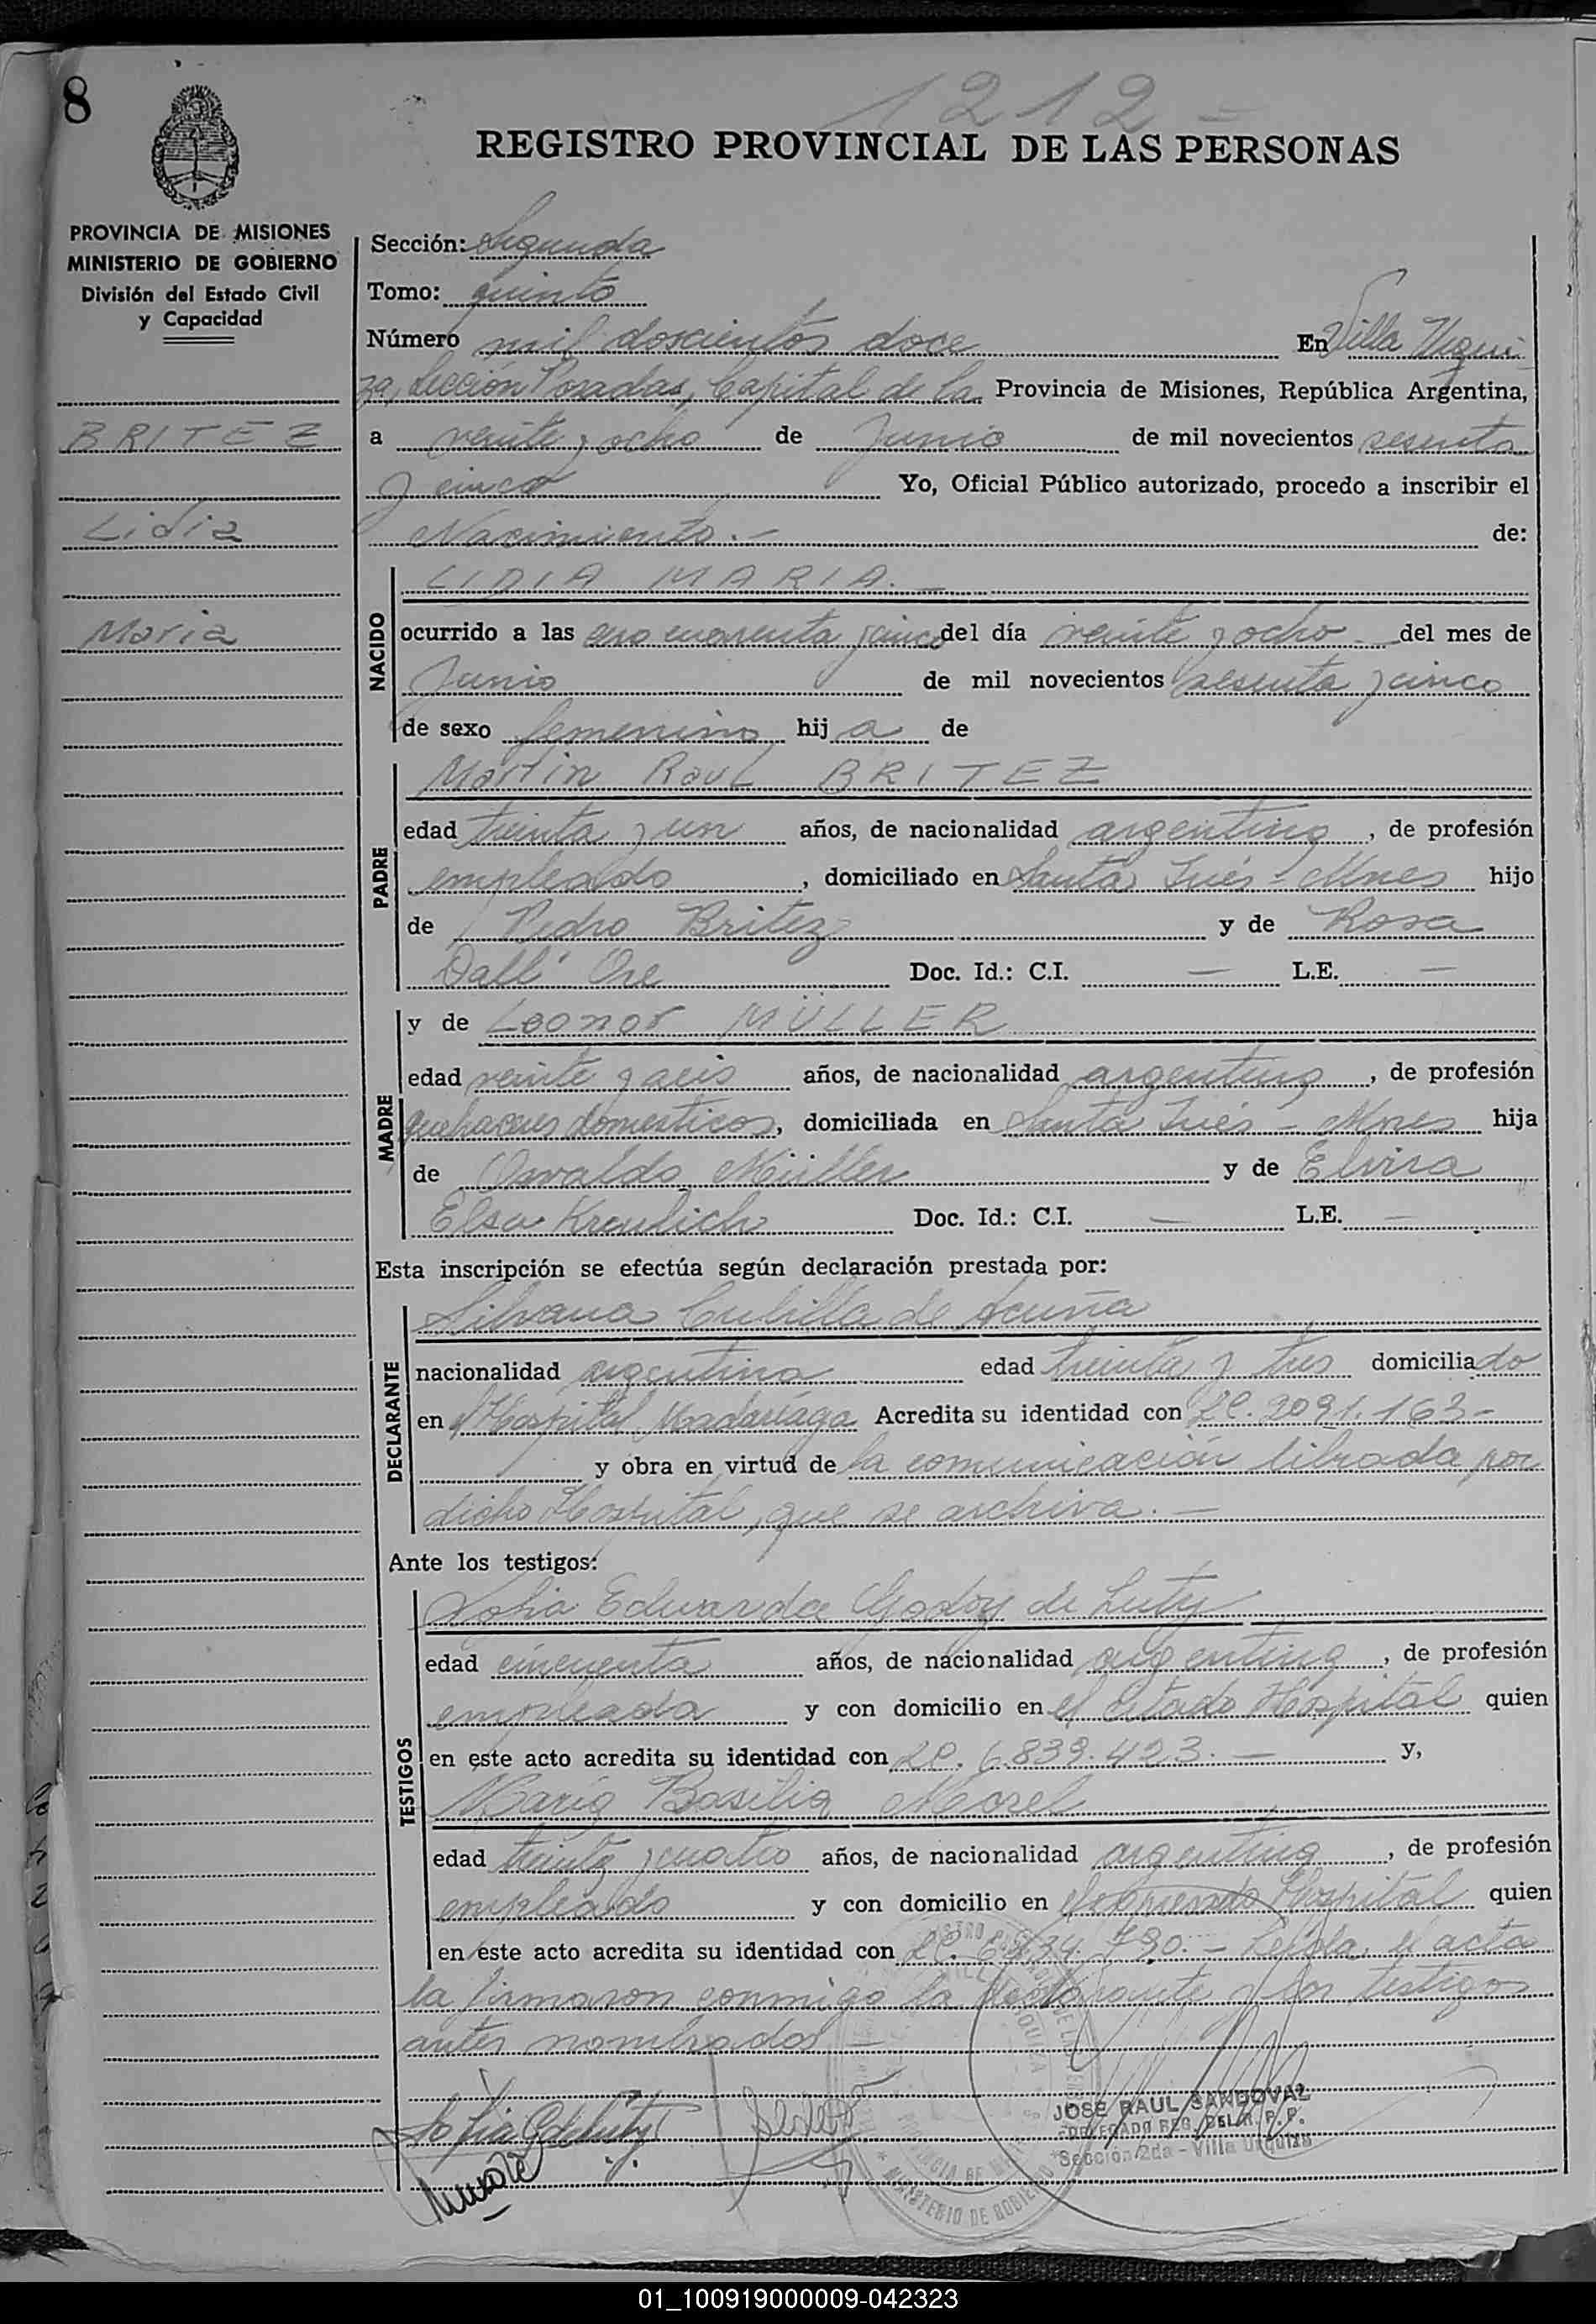 8
1212 -
REGISTRO PROVINCIAL DE LAS PERSONAS
PROVINCIA DE MISIONES
MINISTERIO DE GOBIERNO
División del Estado Civil
y Capacidad
BRITEZ
Lidia
Maria
Sección: Segunda
Tomo: quinto
Número mil doscientos doce En Villa Urqui
za, Sección Posadas, Capital de la Provincia de Misiones, República Argentina,
a veinte y ocho de Junio de mil novecientos sesenta
y cinco Yo, Oficial Público autorizado, procedo a inscribir el
Nacimiento.- de:
NACIDO
LIDIA MARIA.-
ocurrido a las cuarenta y cinco del día veinte y ocho del mes de
Junio de mil novecientos sesenta y cinco
de sexo femenino hij a de
PADRE
Martin Raul BRITEZ
edad treinta y un años, de nacionalidad argentino, de profesión
empleado, domiciliado en Santa Inés - Mnes hijo
de Pedro Britez y de Rosa
Dall' Ore Doc. Id.: C.I. — L.E. —
MADRE
y de Leonor MÜLLER
edad veinte y seis años, de nacionalidad argentina, de profesión
quehaceres domesticos, domiciliada en Santa Inés - Mnes hija
de Osvaldo Müller y de Elvira
Elsa Kreulich Doc. Id.: C.I. — L.E. —
Esta inscripción se efectúa según declaración prestada por:
DECLARANTE
Silvana Cubilla de Acuña
nacionalidad argentina edad treinta y tres domiciliado
en el Hospital Madariaga Acredita su identidad con LC. 2091.163-
y obra en virtud de la comunicación librada por
dicho Hospital, que se archiva.-
Ante los testigos:
TESTIGOS
Sofia Eduarda Godoy de Luty
edad cincuenta años, de nacionalidad argentina, de profesión
empleada y con domicilio en el citado Hospital quien
en este acto acredita su identidad con LC. 6.839.423.- y,
María Basilia Morel
edad treinta y cuatro años, de nacionalidad argentina, de profesión
empleado y con domicilio en el expresado Hospital quien
en este acto acredita su identidad con LC. 790.- Leída el acta
la firmaron conmigo la declarante y los testigos
antes nombrados -
Sofia G de Luty
JOSE RAUL SANDOVAL
DELEGADO REG. DE LA R. P. P.
Sección 2da - Villa Urquiza
MINISTERIO DE GOBIERNO
01_100919000009-042323